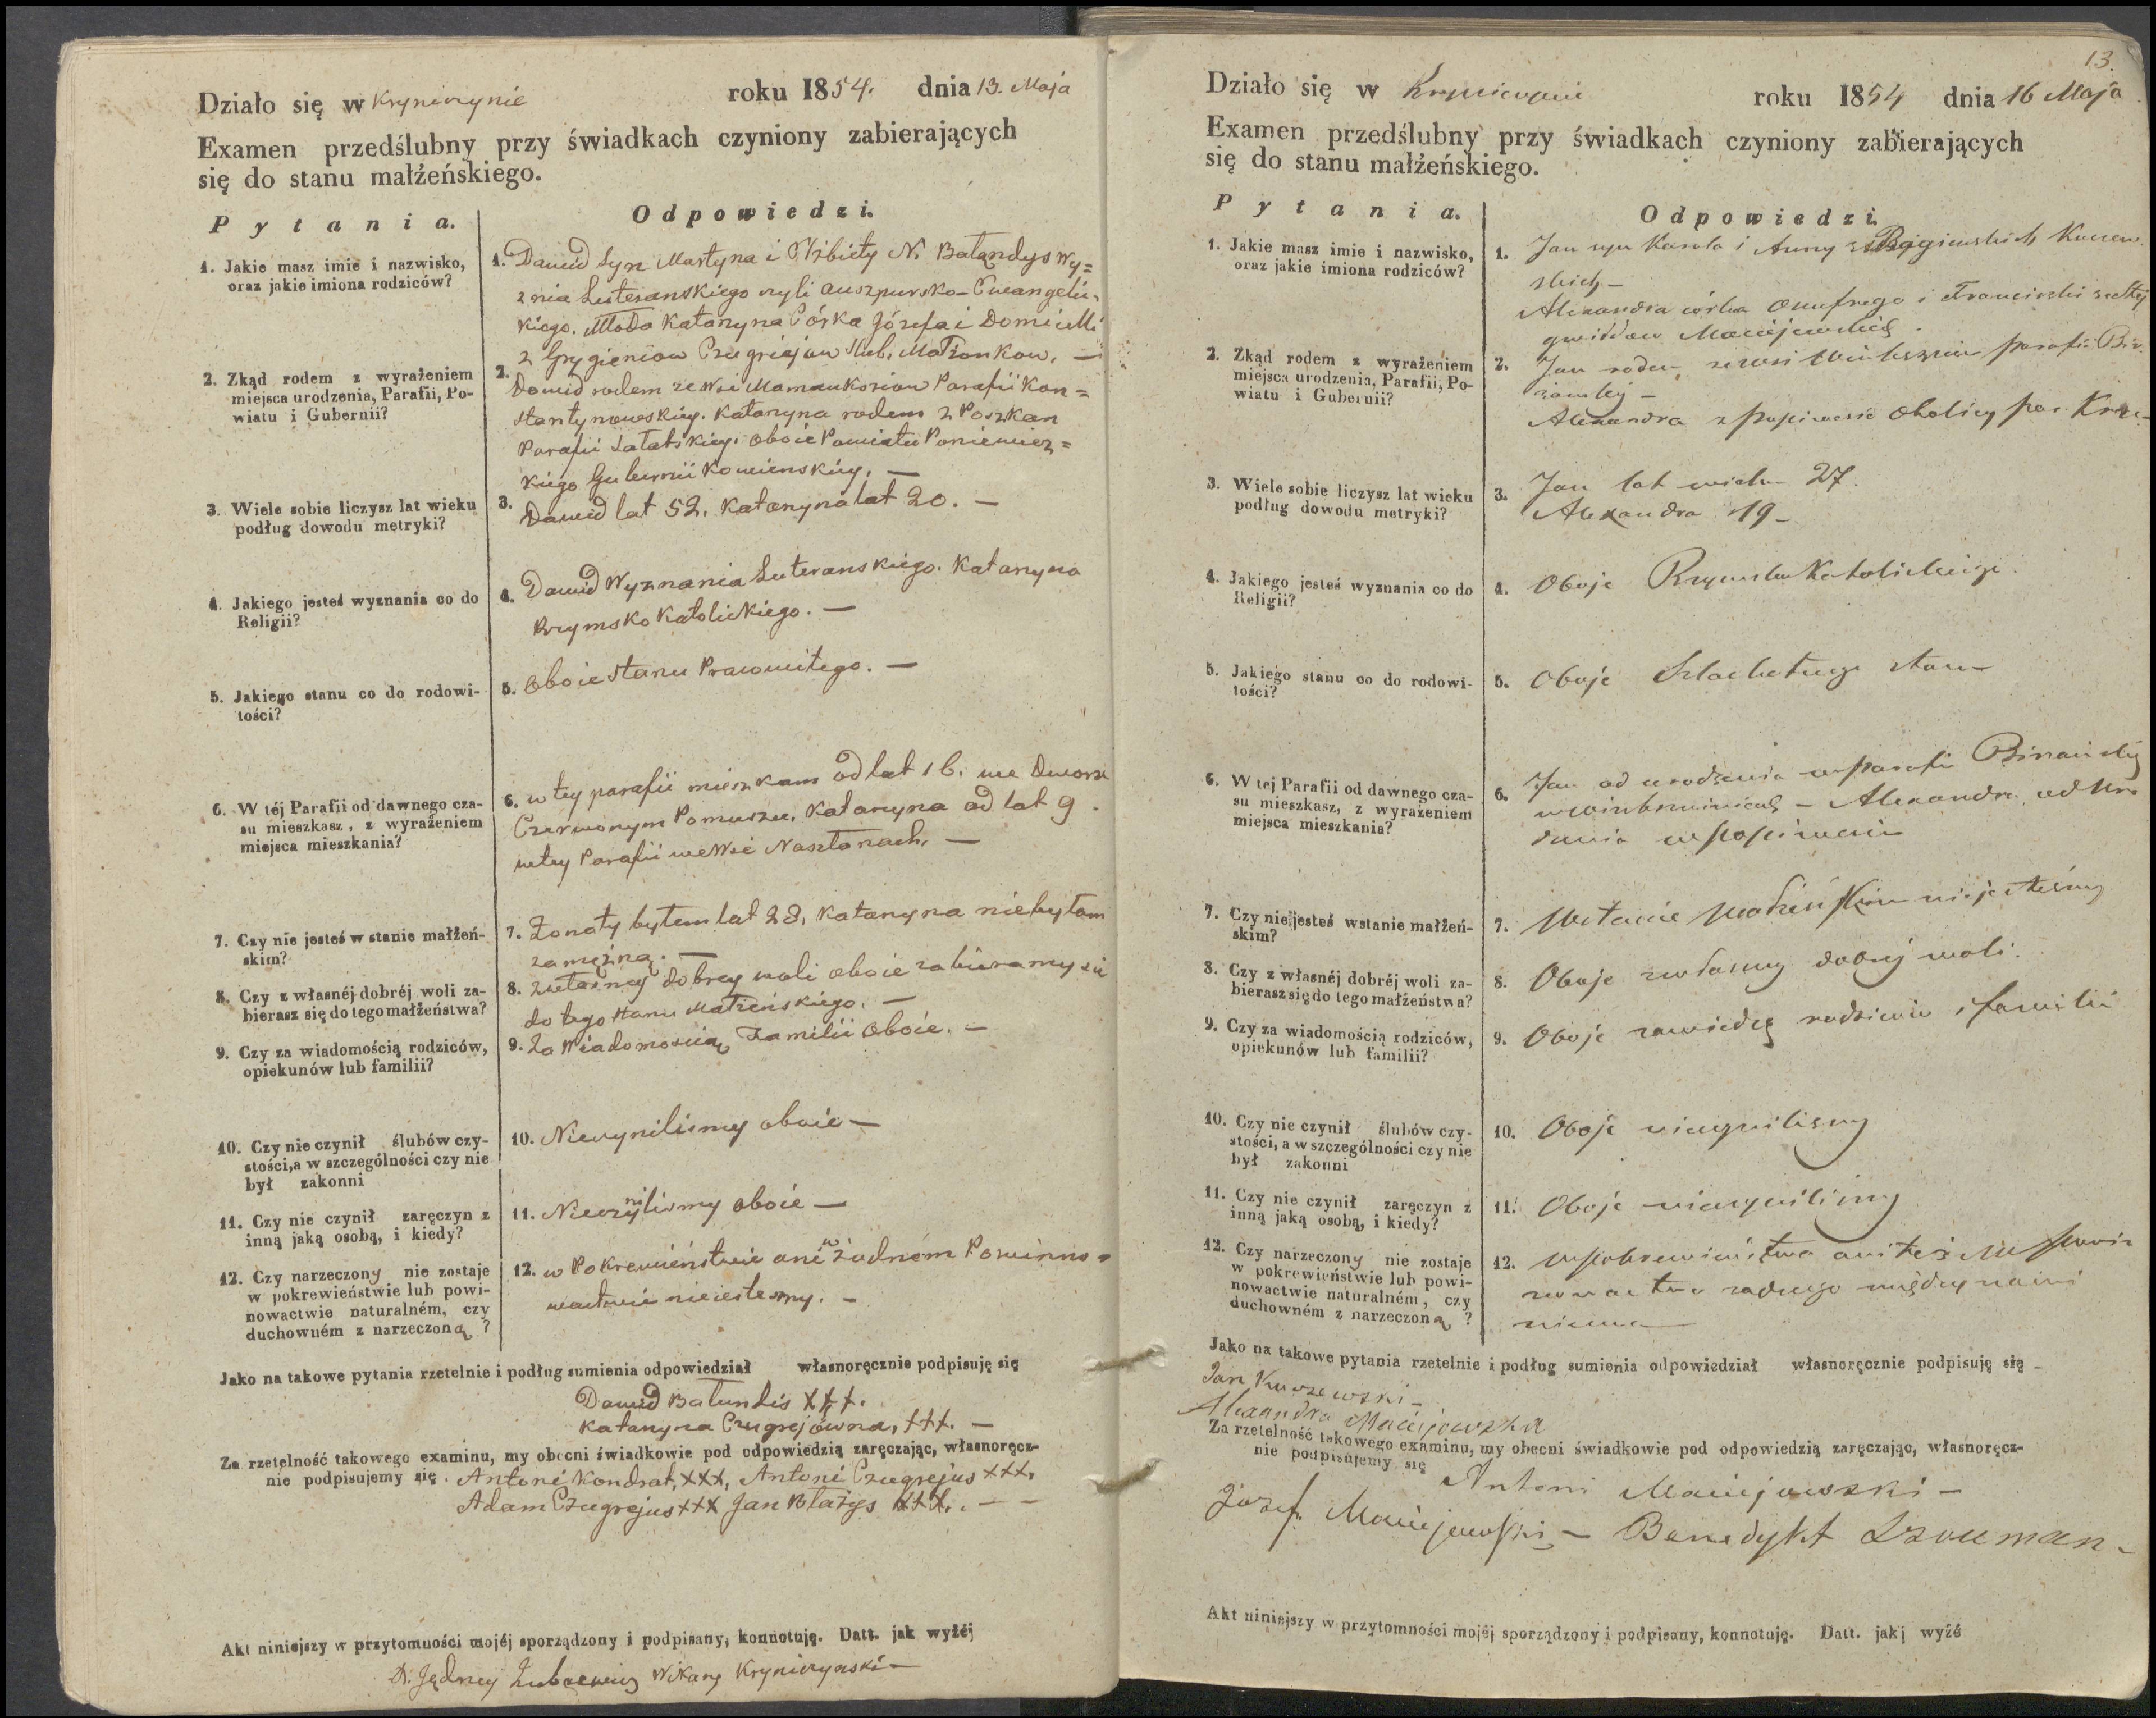 Działo się w Kryniczynie roku 1854. dnia 13. Maja
Examen przedślubny przy świadkach czyniony zabierających
się do stanu małżeńskiego.
Pytania.
Odpowiedzi.
1. Jakie masz imie i nazwisko,
oraz jakie imiona rodziców?
1. Dawid Syn Martyna i Elżbiety N. Bałandys wy=
znia Luteranskiego czyli Auszpursko-Ewangeli-
kiego. Młoda Katarzyna Córka Józefa i Domicelli
z Grygieniow Czugriejow Slub. Małżonkow. —
2. Zkąd rodem z wyrażeniem
miejsca urodzenia, Parafii, Po-
wiatu i Gubernii?
2. Dawid rodem ze Wsi Parafii Kon=
stantynowskiey. Katarzyna rodem z Poszkan
Parafii Sałatskiey. oboie Powiatu Poniewiez=
kiego Gubernii Kowienskiey. —
3. Wiele sobie liczysz lat wieku
podług dowodu metryki?
3. Dawid lat 52. Katarzyna lat 20. —
4. Jakiego jesteś wyznania co do
Religii?
4. Dawid Wyznania Luteranskiego. Katarzyna
Rzymsko Katolickiego. —
5. Jakiego stanu co do rodowi-
tości?
5. Oboie stanu Prawowitego. —
6. W téj Parafii od dawnego cza-
su mieszkasz, z wyrażeniem
miejsca mieszkania?
6. w tey parafii mieszkam od lat 16. we Dworze
Czerwonym Pomuszu, Katarzyna od lat 9.
wtey Parafii we Wsi Nasztonach. —
7. Czy nie jesteś w stanie małżeń-
skim?
7. Żonaty byłem lat 28, Katarzyna niebyłam
zamężną. —
8. Czy z własnéj dobréj woli za-
bierasz się do tego małżeństwa?
8. zwłasney dobrey woli oboie zabieramy sie
do tego stanu Małżeńskiego. —
9. Czy za wiadomością rodziców,
opiekunów lub familii?
9. Za Wiadomoscią Familii Oboie. —
10. Czy nie czynił ślubów czy-
stości, a w szczególności czy nie
był zakonni
10. Nieczynilismy oboie —
11. Czy nie czynił zaręczyn z
inną jaką osobą, i kiedy?
11. Nieczynilismy oboie —
12. Czy narzeczony nie zostaje
w pokrewieństwie lub powi-
nowactwie naturalném, czy
duchowném z narzeczoną ?
12. w Pokrewieństwie ani w żadnem Powinno=
wactwie nieiestesmy. —
Jako na takowe pytania rzetelnie i podług sumienia odpowiedział własnoręcznie podpisuję się
Dawid Balundis +++.
Katarzyna Czugrejówna, +++. —
Za rzetelność takowego examinu, my obecni świadkowie pod odpowiedzią zaręczając, własnoręcz-
nie podpisujemy się. Antoni Kondrat, XXX, Antoni Czugrejus +++,
Adam Czugrejus +++ Jan Błażys +++. — —
Akt niniejszy w przytomności mojéj sporządzony i podpisany, konnotuję. Datt. jak wyżéj
X. Jędrzey Wikary Kryniczynski —
13.
Działo się w Kryniczynie roku 1854 dnia 16 Maja
Examen przedślubny przy świadkach czyniony zabierających
się do stanu małżeńskiego.
Pytania.
Odpowiedzi.
1. Jakie masz imie i nazwisko,
oraz jakie imiona rodziców?
1. Jan syn Karola i Anny z Kurzew
skich —
Alexandra córka Onufrego i Franciszki
Maciejewskich.
2. Zkąd rodem z wyrażeniem
miejsca urodzenia, Parafii, Po-
wiatu i Gubernii?
2. Jan rodem ze wsi parafii Bir
żanskiej —
Alexandra z okolicy par.
3. Wiele sobie liczysz lat wieku
podług dowodu metryki?
3. Jan lat wieku 27.
Alexandra 19 —
4. Jakiego jesteś wyznania co do
Religii?
4. Oboje Rzymsko Katolickiego.
5. Jakiego stanu co do rodowi-
tości?
5. Oboje Szlachetnego stanu
6. W tej Parafii od dawnego cza-
su mieszkasz, z wyrażeniem
miejsca mieszkania?
6. Jan od urodzenia w parafii Birżańskiej
w — Alexandra od uro
dzenia w
7. Czy nie jesteś wstanie małżeń-
skim?
7. Wstanie Małżeńskim niejesteśmy
8. Czy z własnéj dobréj woli za-
bierasz się do tego małżeństwa?
8. Oboje zwłasnej dobrej woli.
9. Czy za wiadomością rodziców,
opiekunów lub familii?
9. Oboje zawiedzą rodziców i familii
10. Czy nie czynił ślubów czy-
stości, a w szczególności czy nie
był zakonni
10. Oboje nieczynilismy
11. Czy nie czynił zaręczyn z
inną jaką osobą, i kiedy?
11. Oboje nieczynilismy
12. Czy narzeczony nie zostaje
w pokrewieństwie lub powi-
nowactwie naturalném, czy
duchowném z narzeczoną ?
12. Wpokrewieństwa ani też powi
nowactwa żadnego między nami
niema
Jako na takowe pytania rzetelnie i podług sumienia odpowiedział własnoręcznie podpisuję się —
Jan Kurzewski —
Alexandra Maciejowska
Za rzetelność takowego examinu, my obecni świadkowie pod odpowiedzią zaręczając, własnoręcz-
nie podpisujemy się
Antoni Maciejowski —
Jozef Maciejewski — Benedykt Szouman —
Akt niniejszy w przytomności mojéj sporządzony i podpisany, konnotuję. Datt. jakj wyżé